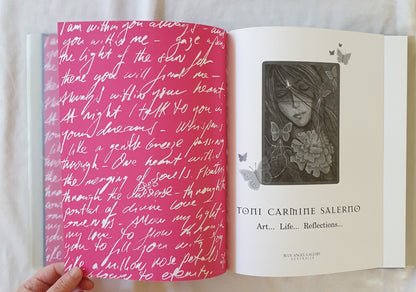 I am within you always and
you within me – gaze upon
the light of the stars for
there you will find me –
always within your heart
At night I talk to you in
your dreams – Whispers
like a gentle breeze passing
through – One heart within
the merging of souls. Floating
through the universe – through the
portal of divine love –
oneness. Allow my light
to flow through
you to fill you with
like a million rose petals
to eternity.
TONI CARMINE SALERNO
Art... Life... Reflections...
BLUE ANGEL GALLERY
AUSTRALIA